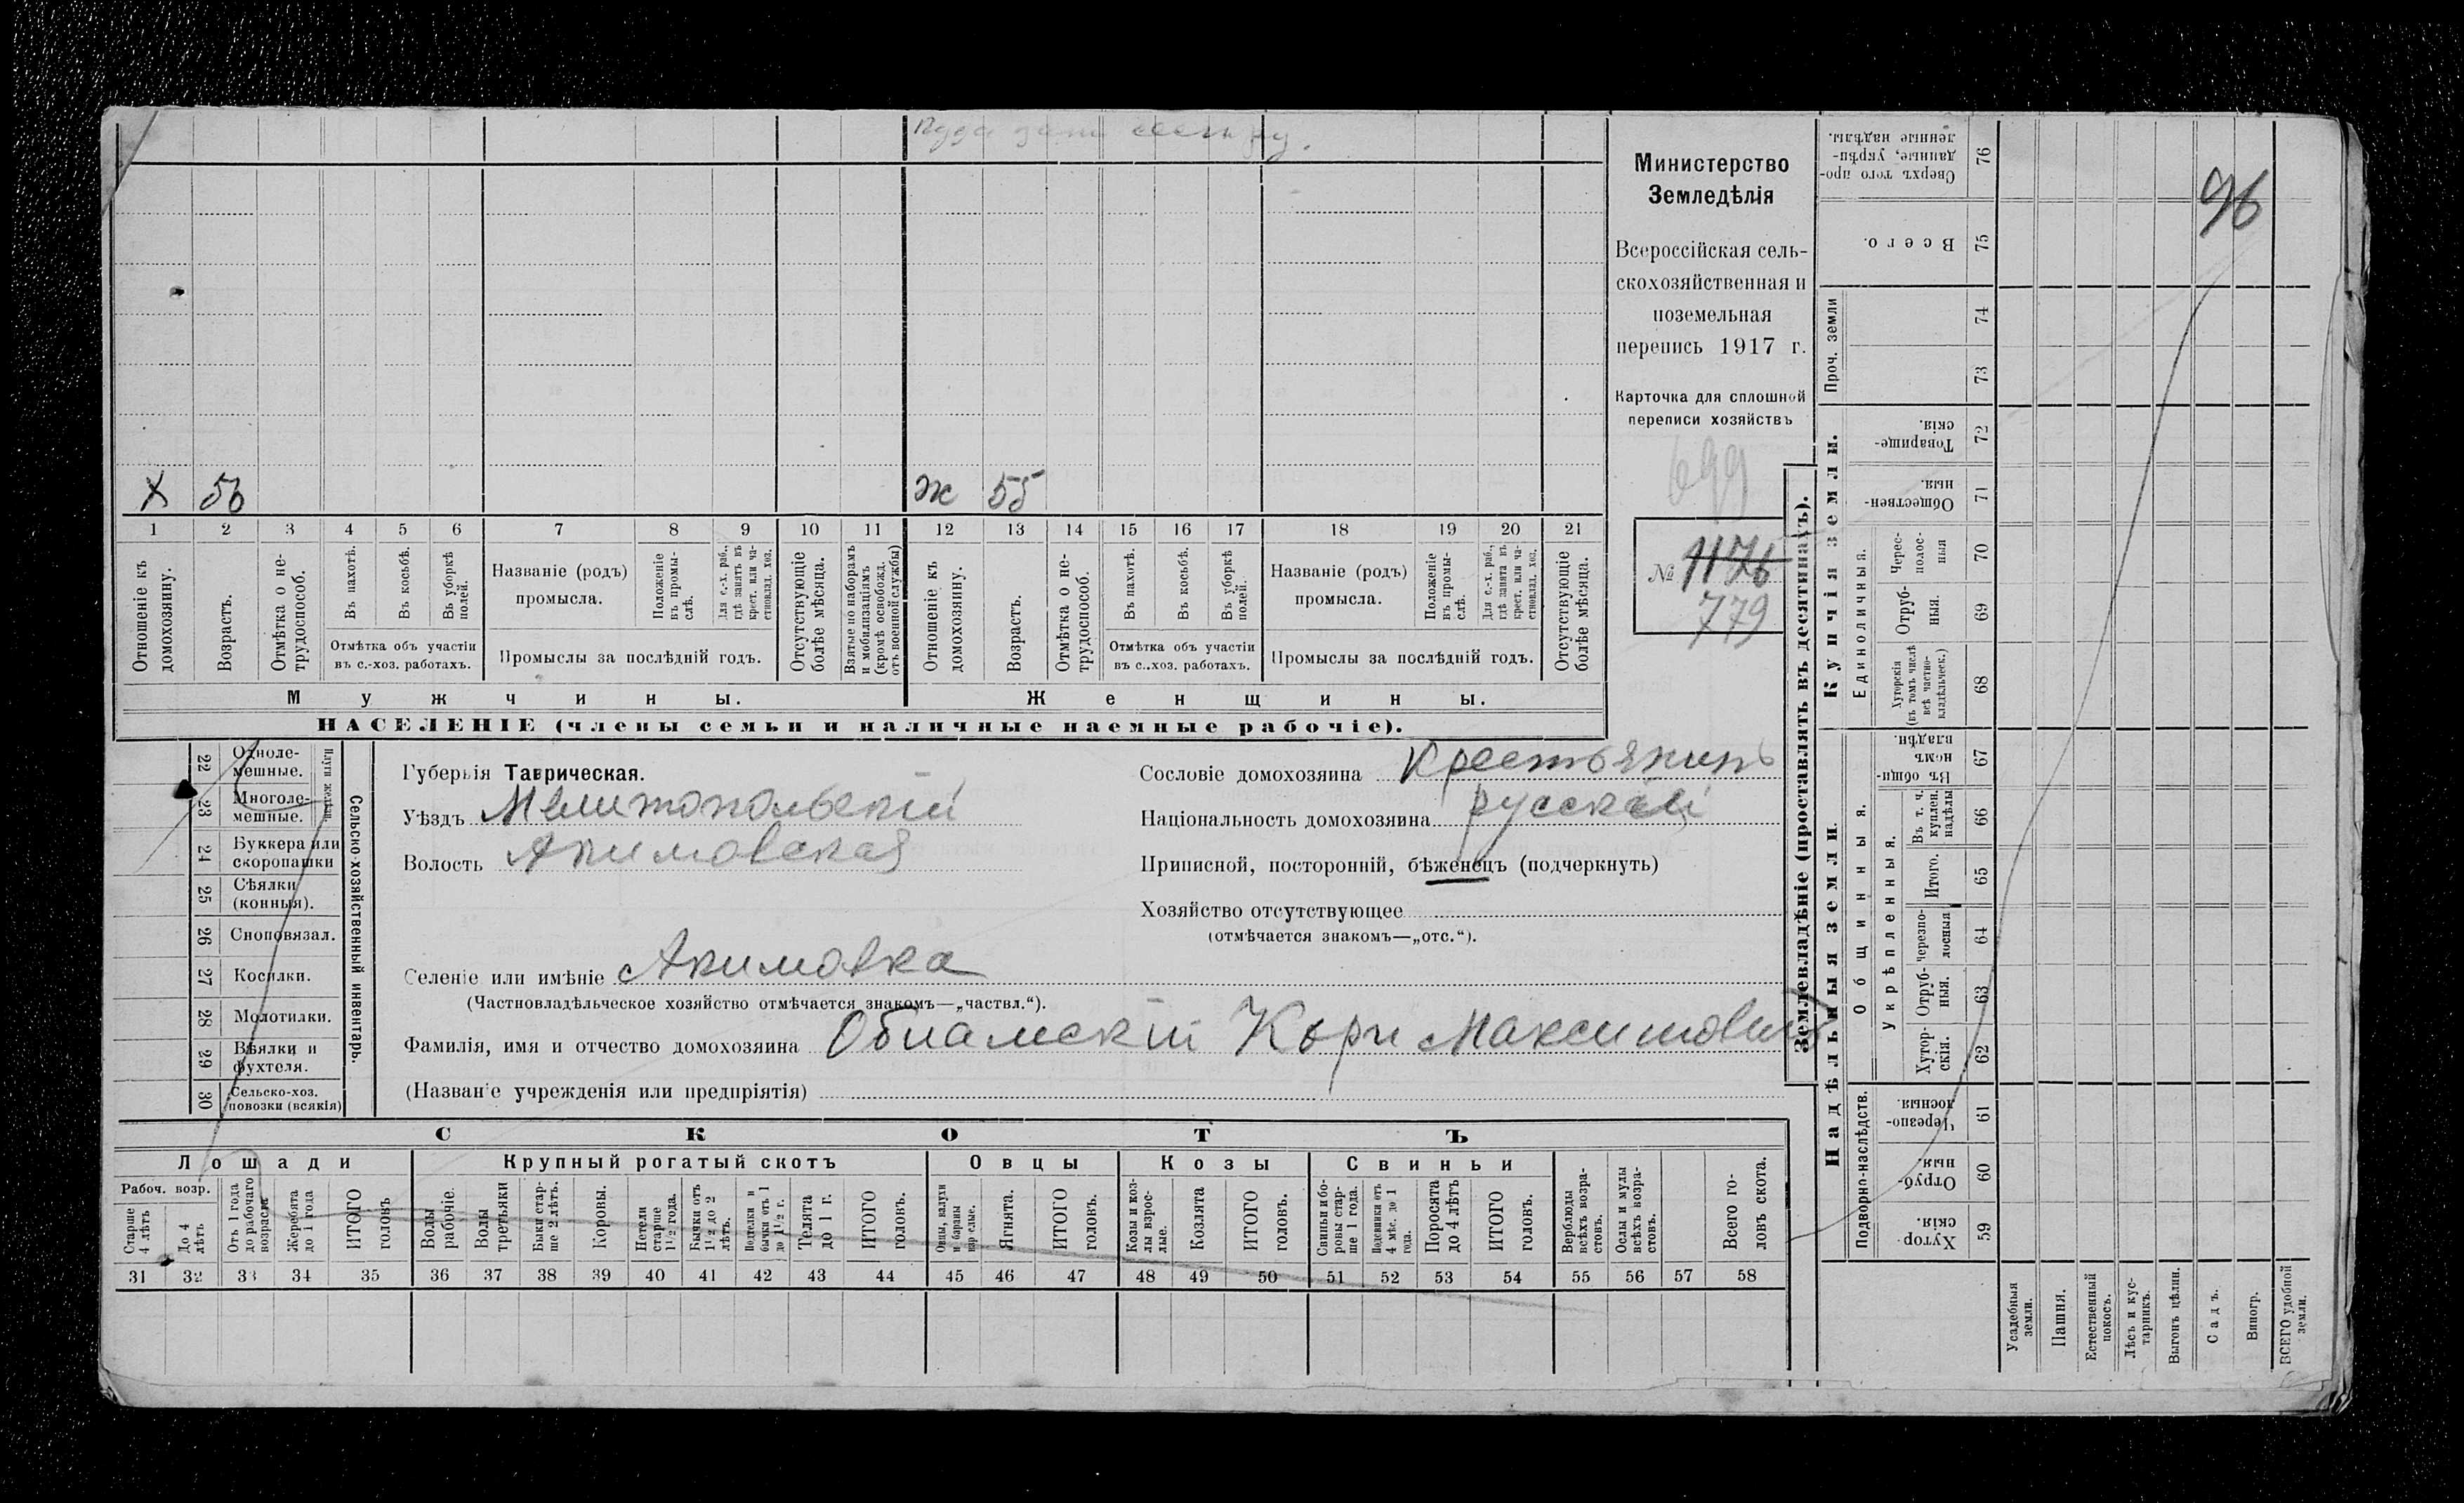 Министерство
Земледѣлія
Всероссійская сель-
скохозяйственная и
поземельная
перепись 1917 г.
Карточка для сплошной
переписи хозяйствъ
699
№ 1176
779
96
Х 56
Ж 55
1 2 3 4 5 6 7 8 9 10 11 12 13 14 15 16 17 18 19 20 21
Отношеніе къ домохозяину.
Возрастъ.
Отмѣтка о не-трудоспособ.
Въ пахотѣ.
Въ косьбѣ.
Въ уборкѣ полей.
Отмѣтка объ участіи
въ с.-хоз. работахъ.
Названіе (родъ)
промысла.
Положеніе въ промы-слѣ.
Промыслы за послѣдній годъ.
Отсутствующіе болѣе мѣсяца.
Взятые по наборамъ и мобилизаціямъ (кромѣ освобожд. отъ военной службы)
Отношеніе къ домохозяину.
Возрастъ.
Отмѣтка о не-трудоспособ.
Въ пахотѣ.
Въ косьбѣ.
Въ уборкѣ полей.
Отмѣтка объ участіи
въ с.-хоз. работахъ.
Названіе (родъ)
промысла.
Положеніе въ промы-слѣ.
Промыслы за послѣдній годъ.
Отсутствующіе болѣе мѣсяца.
Мужчины.
Женщины.
НАСЕЛЕНІЕ (члены семьи и наличные наемные рабочіе).
22 Одноле-мешные.
23 Многоле-мешные.
24 Буккера или скоропашки
25 Сѣялки (конныя).
26 Сноповязал.
27 Косилки.
28 Молотилки.
29 Вѣялки и фухтеля.
30 Сельско-хоз. повозки (всякія)
Сельско-хозяйственный инвентарь.
Губернія Таврическая.
Уѣздъ Мелитопольскій
Волость Акимовская
Сословіе домохозяина Крестьянинъ
Національность домохозяина русскій
Приписной, посторонній, бѣженецъ (подчеркнуть)
Хозяйство отсутствующее
(отмѣчается знакомъ—„отс.“).
Селеніе или имѣніе Акимовка
(Частновладѣльческое хозяйство отмѣчается знакомъ—„частвл.“).
Фамилія, имя и отчество домохозяина Максимовичъ
(Названіе учрежденія или предпріятія)
СКОТЪ
Лошади
Крупный рогатый скотъ
Овцы
Козы
Свиньи
Рабоч. возр.
Старше 4 лѣтъ
До 4 лѣтъ
Отъ 1 года до рабочаго возраста
Жеребята до 1 года
ИТОГО головъ
Волы рабочіе.
Волы третьяки
Быки стар-ше 2 лѣтъ.
Коровы.
Нетели старше 1 1/2 года.
Бычки отъ 1 1/2 до 2 лѣтъ.
Подтелки и бычки отъ 1 до 1 1/2 г.
Телята до 1 г.
ИТОГО головъ.
Овцы, валухи и бараны взрослые.
Ягнята.
ИТОГО головъ.
Козы и коз-лы взрос-лые.
Козлята
ИТОГО головъ.
Свиньи и бо-ровы стар-ше 1 года.
Подсвинки отъ 4 мѣс. до 1 года.
Поросята до 4 лѣтъ
ИТОГО головъ.
Верблюды всѣхъ возра-стовъ.
Ослы и мулы всѣхъ возра-стовъ.
Всего го-ловъ скота.
31 32 33 34 35 36 37 38 39 40 41 42 43 44 45 46 47 48 49 50 51 52 53 54 55 56 57 58
Землевладѣніе (проставлять въ десятинахъ).
Надѣльныя земли.
Купчія земли.
Проч. земли
Подворно-наслѣдств.
Общинныя.
Укрѣпленныя.
Единоличныя.
Хутор-скія. 59
Отруб-ныя. 60
Черезпо-лосныя. 61
Хутор-скія. 62
Отруб-ныя. 63
Черезпо-лосныя 64
Итого. 65
Въ т. ч. куплен. надѣлы 66
Въ общин-номъ владѣн. 67
Хуторскія (въ томъ числѣ всѣ частно-владѣльческ.) 68
Отруб-ныя. 69
Черес-полос-ныя 70
Обществен-ныя. 71
Товарище-скія. 72
73
74
Всего. 75
Сверхъ того про-данные, укрѣп-ленные надѣлы. 76
Усадебныя земли.
Пашня.
Естественный покосъ.
Лѣсъ и кус-тарникъ.
Выгонъ цѣлин.
Садъ.
Виногр.
ВСЕГО удобной земли.